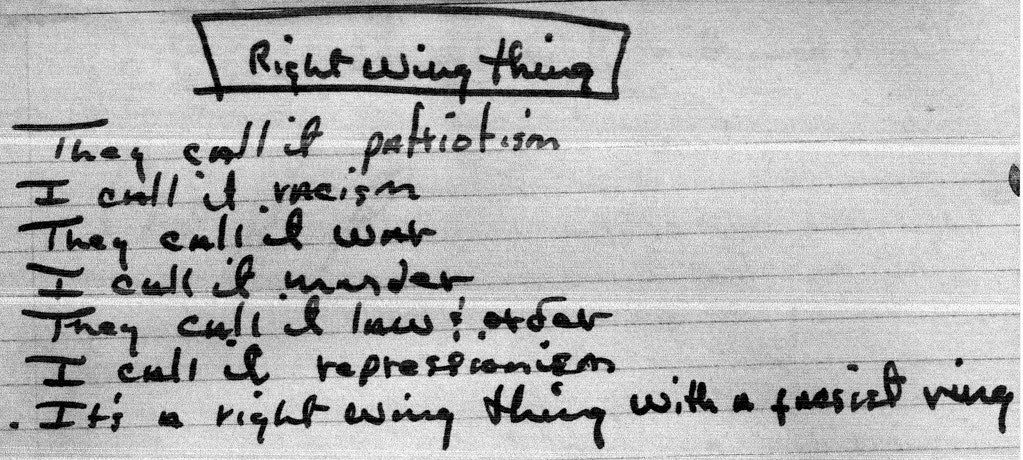 Right wing thing
They call it patriotism
I call it racism
They call it war
I call it murder
They call it law & order
I call it repressionism
. It's a right wing thing with a fascist ring